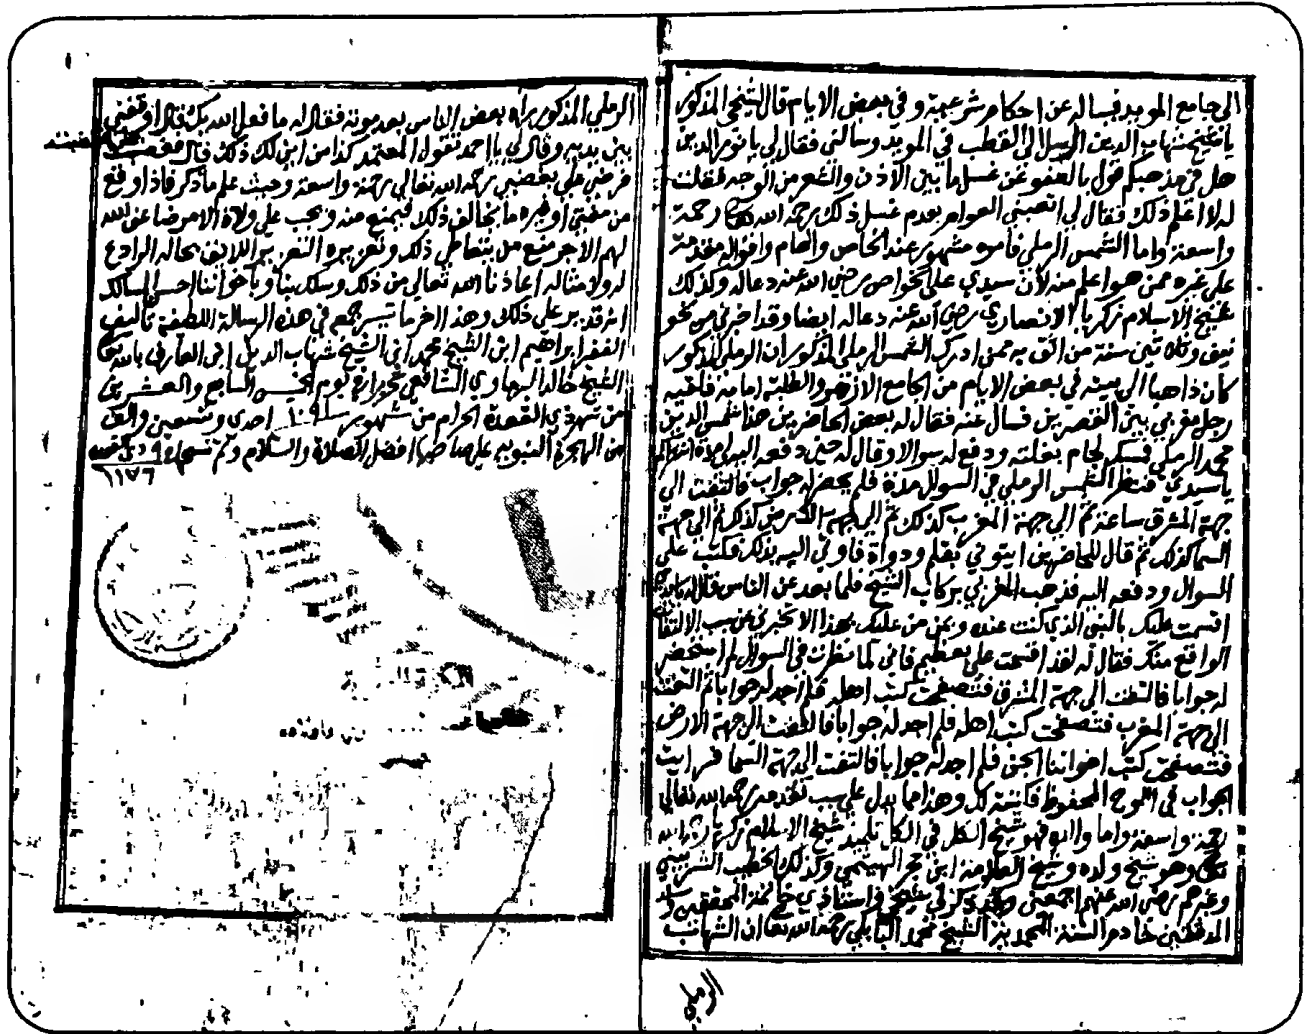 الى جامع المويد فيساله عن احكام شرعية وفي بعض الايام قال لشيخي المذكور
يا شيخ شهاب الدين ارسل لي القطب في المويد وسالني فقال لي يا نور الدين
هل في مذهبكم قول بالعفو عن غسل ما بين الاذن والشعر من الوجه فقلت
له لا اعلم ذلك فقال لي اتعبني العوام بعدم غسل ذلك رحمه الله تعالى رحمة
واسعة واما الشمس الرملي فامره مشهور عند الخاص والعام واقواله مقدمة
على غيره ممن هو اعلم منه لأن سيدي علي الخواص رضي الله عنه دعا له وكذلك
شيخ الاسلام زكريا الانصاري رضي الله عنه دعا له ايضا وقد اخبرني من نحو
نيف وثلاثين سنة من اثق به ممن ادرك الشمس الرملي المذكور ان الرملي المذكور
كان ذاهبا الى بيته في بعض الايام من الجامع الازهر والطلبة امامه فلقيه
رجل مغربي بين القصرين فسال عنه فقال له بعض الحاضرين هذا شمس الدين
محمد الرملي فمسك لجام بغلته ودفع له سوالا وقال له حين دفعه اليه
يا سيدي فنظر الشمس الرملي في السوال مدة فلم يحضر له جواب فالتفت الى
جهة المشرق ساعة ثم الى جهة المغرب كذلك ثم الى جهة الارض كذلك ثم الى جهة
السما كذلك ثم قال للحاضرين ايتوني بقلم ودواة فاوتي اليه بذلك فكتب على
السوال ودفعه اليه فذهب المغربي بركاب الشيخ فلما بعد عن الناس قال له
اقسمت عليك بالنبي الذي كنت عنده ومن من عليك بهذا الا تخبرني عن سبب الالتفات
الواقع منك فقال له لقد اقسمت علي بعظيم فاني لما نظرت في السوال لم استحضر
له جوابا فالتفت الى جهة المشرق فتصفحت كتب اهله فلم اجد له جوابا ثم التفت
الى جهة المغرب فتصفحت كتب اهله فلم اجد له جوابا فالتفت الى جهة الارض
فتصفحت كتب اخواننا الجن فلم اجد له جوابا فالتفت الى جهة السما فرايت
الجواب في اللوح المحفوظ فكتبته لك وهذا مما يدل على سبب تقدمه رحمه الله تعالى
رحمة واسعة واما والده فهو شيخ الكل في الكل تلميذ شيخ الاسلام زكريا رحمه الله
تعالى وهو شيخ ولده وشيخ العلامة ابن حجر الهيتمي وكذلك الخطيب الشربيني
وغيرهم رضي الله عنهم اجمعين وقد ذكر لي شيخي واستاذي خاتمة المحققين
المدققين خادم السنة المحمدية الشيخ محمد البابلي رحمه الله تعالى ان الشهاب
الرملي
الرملي المذكور رأه بعض الناس بعد موته فقال له ما فعل الله بك فقال اوقفني
بين يديه وقال لي يا احمد تقول المعتمد كذا من اين لك ذلك فقال
فرضي علي بغضبي رحمه الله تعالى رحمة واسعة وحيث علم ما ذكر فاذا وقع
من مفتي او غيره ما يخالف ذلك فيمنع منه ويجب على ولاة الامر ضاعف الله
لهم الاجر منع من يتعاطى ذلك وتعزيره التعزير اللائق بحاله الرادع
له ولامثاله اعاذنا الله تعالى من ذلك وسلك بنا وباخواننا احسن المسالك
انه قدير على ذلك وهذا اخر ما تيسر جمعه في هذه الرسالة اللطيفة تأليف
الفقير ابراهيم ابن الشيخ محمد ابن الشيخ شهاب الدين ابن العارف بالله
الشيخ خالد البرماوي الشافعي تحريرا في يوم الخميس السابع والعشرين
من شهر ذي القعدة الحرام من شهور سنة ١٠٩١ احدى وتسعين والف
من الهجرة النبوية على صاحبها افضل الصلاة والسلام وتم نسخها
١١٧٦